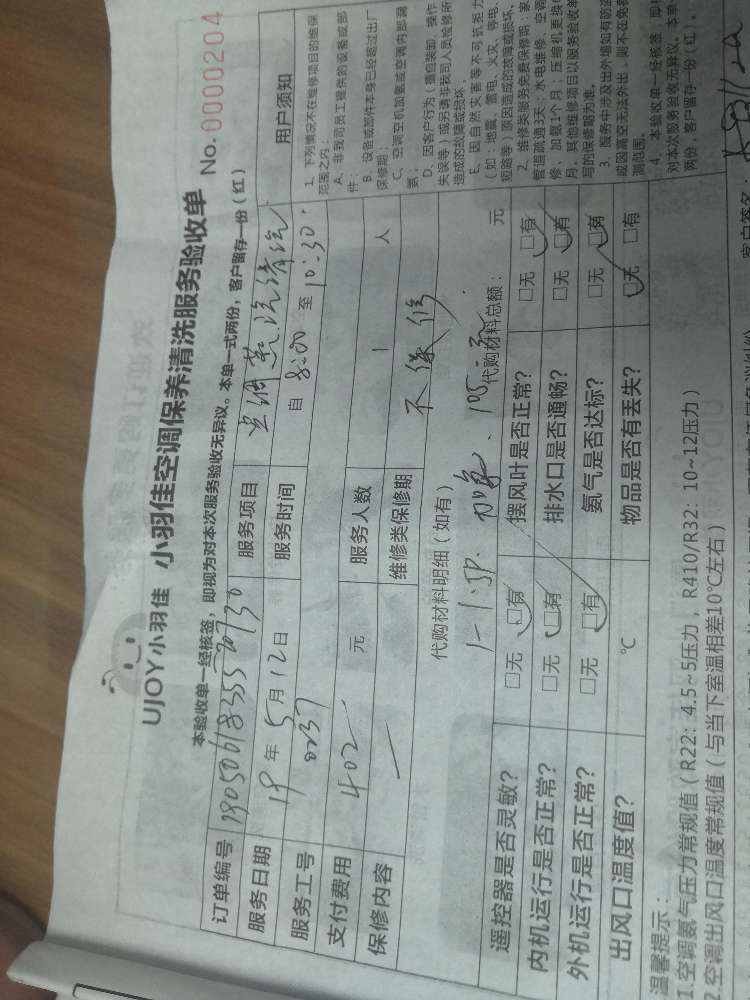 UJOY小羽佳 小羽佳空调保养清洗服务验收单 No.0000204
本验收单一经核签，即视为对本次服务验收无异议。本单一式两份，客户留存一份（红）
订单编号 服务项目
服务日期 19年5月12日 服务时间 自 8:00 至 10:30
服务工号 0237
支付费用 402 元 服务人数 1 人
保修内容 — 维修类保修期 不保修
代购材料明细（如有）
1-1.5P. 代购材料总额： 元
遥控器是否灵敏？ □无 □有 摆风叶是否正常？ □无 □有
内机运行是否正常？ □无 □有 排水口是否通畅？ □无 □有
外机运行是否正常？ □无 □有 氨气是否达标？ □无 □有
出风口温度值？ ℃ 物品是否有丢失？ □无 □有
用户须知
1、下列情况不在维修项目的维保
范围之内：
A、非我司员工提供的设备或部
件；
B、设备或部件本身已经超过出厂
保修期；
C、空调空机加氨或空调内部漏
氨；
D、因客户行为（擅自装卸、操作
失误等）或另请非我司人员检修所
造成的故障或损坏
E、因自然灾害等不可抗拒力
（如：地震、雷电、火灾、停电、
短路等）原因造成的故障或损坏。
2、维修类服务免费保修期：家
管道疏通3天；水电维修、空调
修、加氨1个月；压缩机更换
月，其他维修项目以服务验收单
写的保修期为准。
3、服务中涉及出外墙如有防盗
或因高空无法外出，则不在免费
测范围。
4、本验收单一经核签，即
对本次服务验收无异议。本单
两份，客户留存一份（红）。
温馨提示：
1.空调氨气压力常规值（R22: 4.5~5压力，R410/R32: 10~12压力）
2.空调出风口温度常规值（与当下室温相差10℃左右）
客户签名：